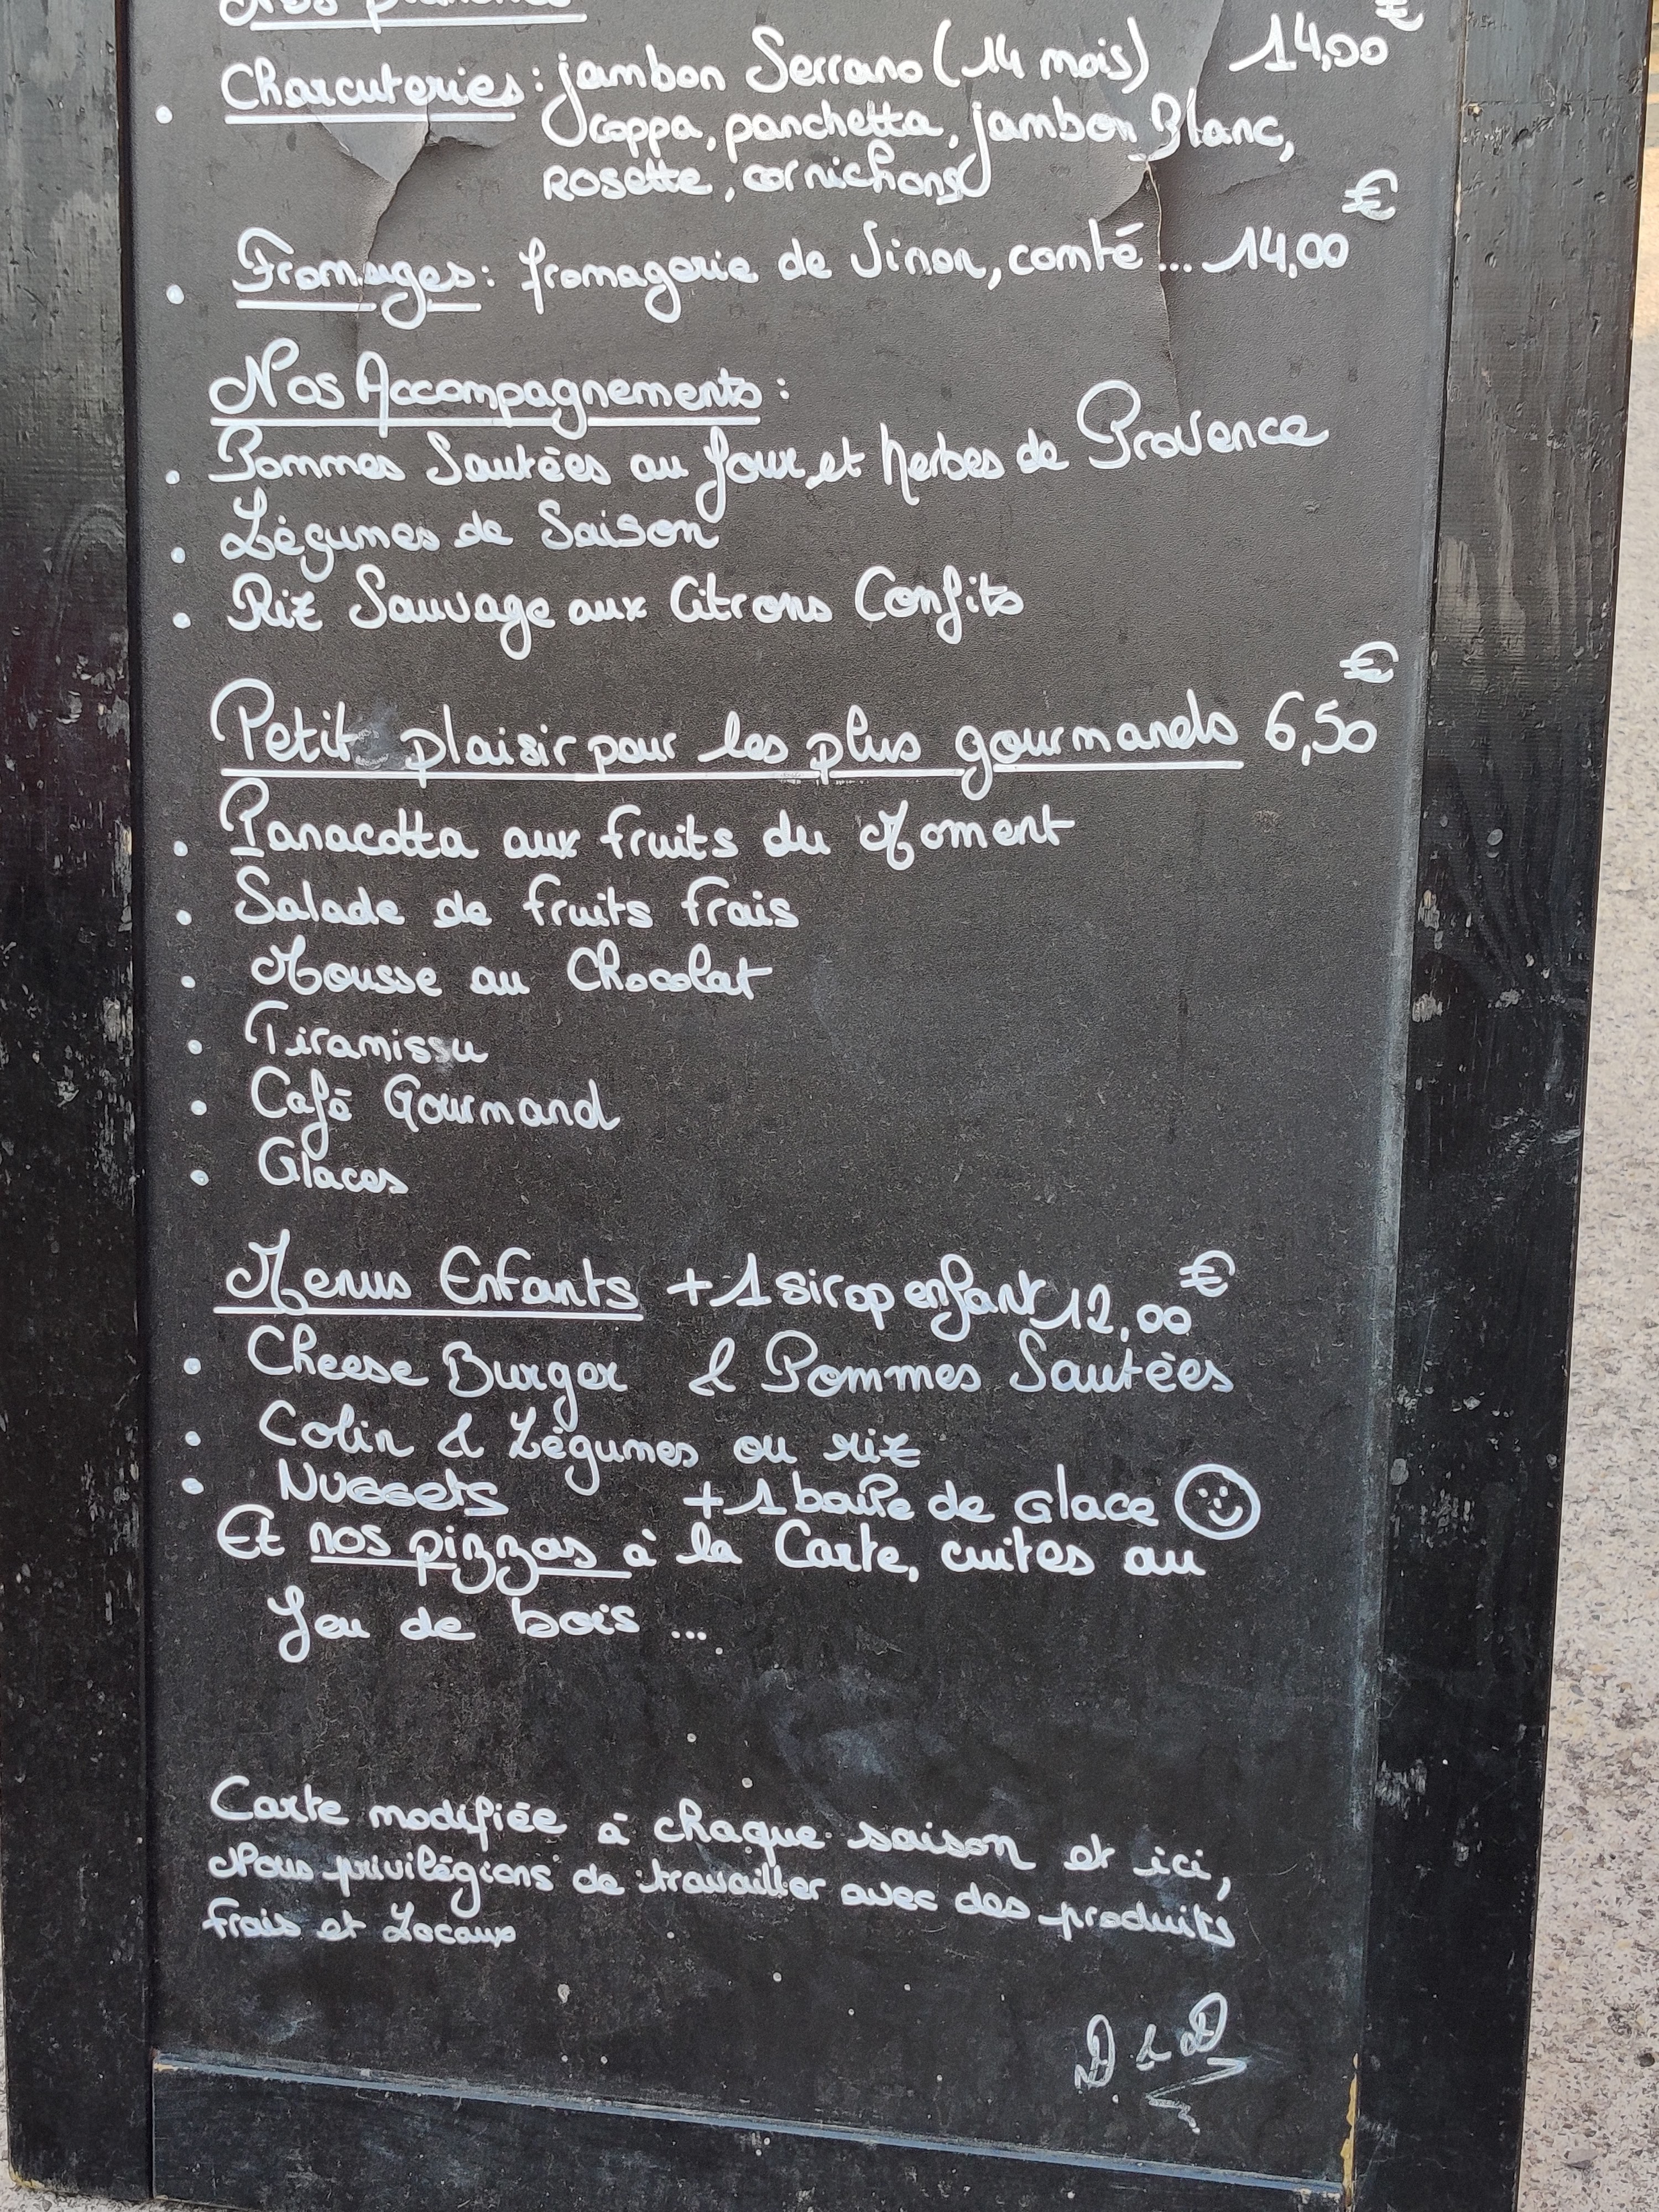 Nos planches
Charcuteries : jambon Serrano (14 mois) 14,00€
coppa, panchetta, jambon Blanc,
rosette, cornichons
Fromages : fromagerie de Vinon, comté ... 14,00€
Nos Accompagnements :
Pommes Sautées au four et herbes de Provence
Légumes de Saison
Riz Sauvage aux Citrons Confits
Petit plaisir pour les plus gourmands 6,50€
Panacotta aux fruits du Moment
Salade de fruits frais
Mousse au Chocolat
Tiramissu
Café Gourmand
Glaces
Menus Enfants + 1 sirop enfant 12,00€
Cheese Burger & Pommes Sautées
Colin & Légumes ou riz
Nuggets + 1 boule de Glace
Et nos pizzas à la Carte, cuites au
feu de bois ...
Carte modifiée à chaque saison et ici,
Nous privilégions de travailler avec des produits
frais et Locaux
D & D